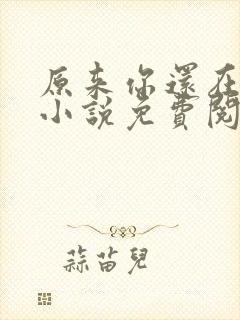 原来你還在
小說免費閱
蒜苗兒